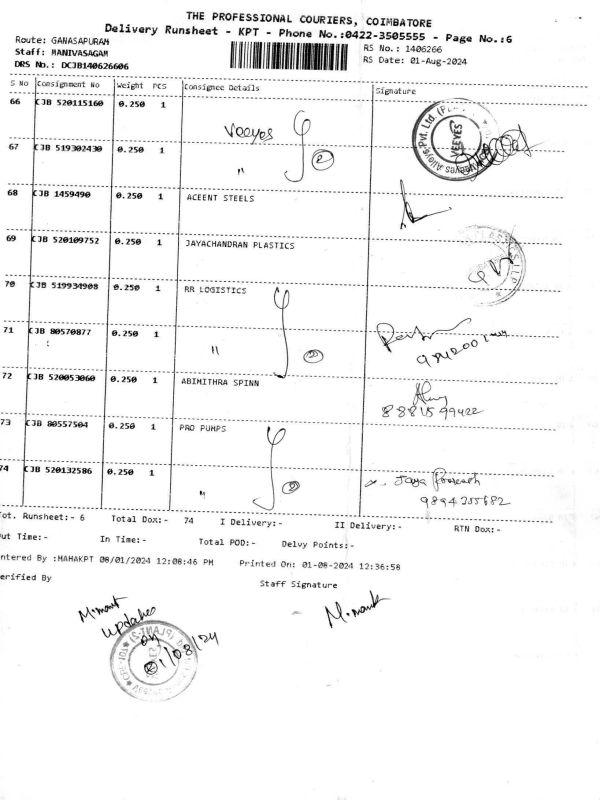 THE PROFESSIONAL COURIERS, COIMBATORE
Delivery Runsheet - KPT - Phone No.:0422-3505555 - Page No.:6
Route: GANASAPURAM
RS No.: 1406266
Staff: MANIVASAGAM
RS Date: 01-Aug-2024
DRS No.: DCJB140626606
S No Consignment No Weight PCS Consignee Details Signature
66 CJB 520115160 0.250 1 Veeyes
VEEYES
67 CJB 519302430 0.250 1 " 2
68 CJB 1459490 0.250 1 ACEENT STEELS
69 CJB 520109752 0.250 1 JAYACHANDRAN PLASTICS
70 CJB 519934908 0.250 1 RR LOGISTICS
71 CJB 80570877 0.250 1 " 2
:
72 CJB 520053060 0.250 1 ABIMITHRA SPINN
8881599422
73 CJB 80557504 0.250 1 PRO PUMPS
74 CJB 520132586 0.250 1 " 2 Jaya
9894255682
ot. Runsheet:- 6 Total Dox:- 74 I Delivery:- II Delivery:- RTN Dox:-
ut Time:- In Time:- Total POD:- Delvy Points:-
ntered By :MAHAKPT 08/01/2024 12:08:46 PM Printed On: 01-08-2024 12:36:58
erified By Staff Signature
updated
on
01/08/24